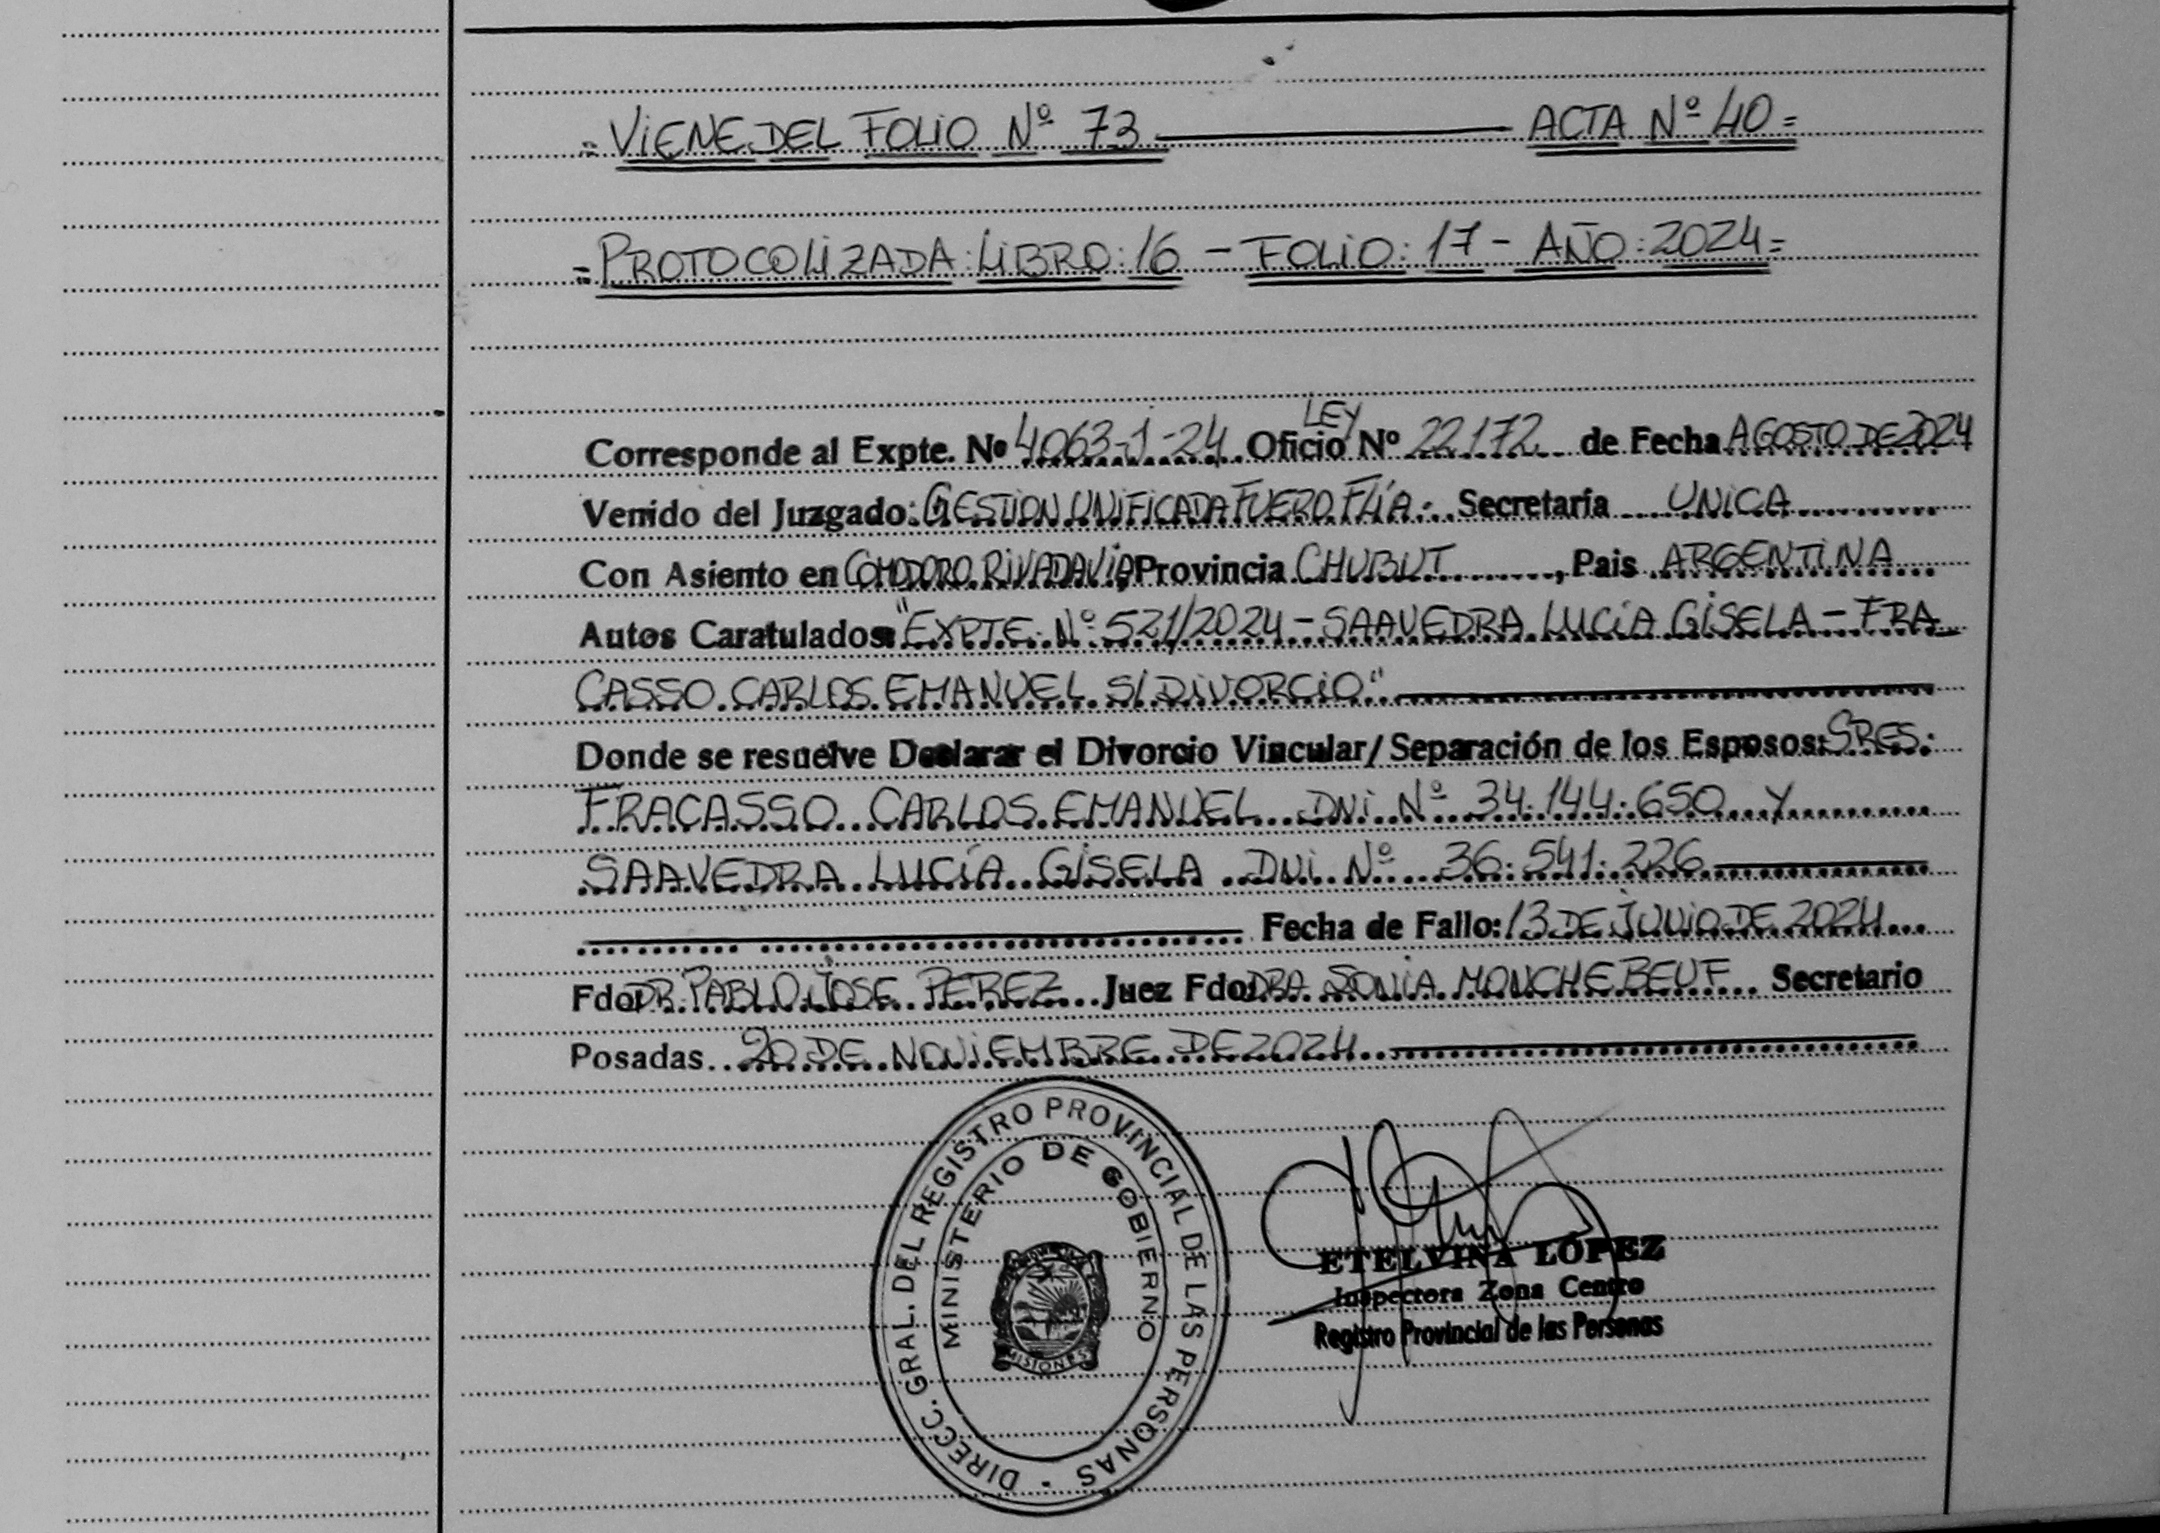 =VIENE DEL FOLIO Nº 73 ACTA Nº 40=
=PROTOCOLIZADA: LIBRO: 16 - FOLIO: 17 - AÑO: 2024=
LEY
Corresponde al Expte. Nº 4063-1-24 Oficio Nº 22.172 de Fecha AGOSTO DE 2024
Venido del Juzgado: GESTION UNIFICADA FUERO FLÍA. Secretaría UNICA
Con Asiento en COMODORO RIVADAVIA, Provincia CHUBUT, Pais ARGENTINA
Autos Caratulados: "EXPTE Nº 521/2024 - SAAVEDRA LUCÍA GISELA - FRA
CASSO CARLOS EMANUEL S/ DIVORCIO"
Donde se resuelve Declarar el Divorcio Vincular/Separación de los Esposos: SRES.
FRACASSO CARLOS EMANUEL DNI Nº 34.144.650 Y
SAAVEDRA LUCÍA GISELA DNI Nº 36.541.226
Fecha de Fallo: 13 DE JUNIO DE 2024
Fdo: DR. PABLO JOSE PEREZ Juez Fdo: DRA SONIA MONCHEBEUF Secretario
Posadas 20 DE NOVIEMBRE DE 2024
DIRECC. GRAL. DEL REGISTRO PROVINCIAL DE LAS PERSONAS
MINISTERIO DE GOBIERNO
MISIONES
ETELVINA LÓPEZ
Inspectora Zona Centro
Registro Provincial de las Personas